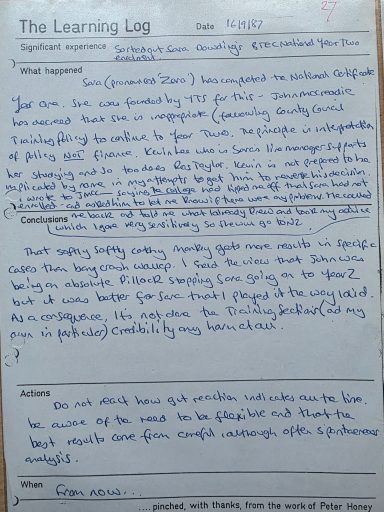 27
The Learning Log
Date 16/9/87
Significant experience Sorted out Sara Dowding's BTEC National Year Two
enrolment.
What happened
Sara (pronounced 'Zara') has completed the National Certificate
Year One. She was founded by YTS for this - John
has decreed that she is inappropriate (following County Council
Training Policy) to continue to Year Two. The principle is interpretation
of policy NOT finance. Kevin who is Sara's line manager supports
her studying and so too does Ros Taylor. Kevin is not prepared to be
implicated by name in my attempts to get him to reverse his decision.
I wrote to saying the college had tipped me off that Sara had not
enrolled - and asked him to let me know if there were any problems. He called
Conclusions me back and told me what I already knew and took my advice
which I gave very sensitively so she will go to N2.
That softly softly catchy monkey gets more results in specific
cases than bang crash wallop. I held the view that John was
being an absolute Pillock stopping Sara going on to Year 2
but it was better for Sara that I played it the way I did.
As a consequence, It's not done the Training Section (and my
own in particular) credibility any harm at all.
Actions
Do not react how gut reaction indicates all the time.
Be aware of the need to be flexible and that the
best results come from careful, although often spontaneous
analysis.
When
From now...
....pinched, with thanks, from the work of Peter Honey